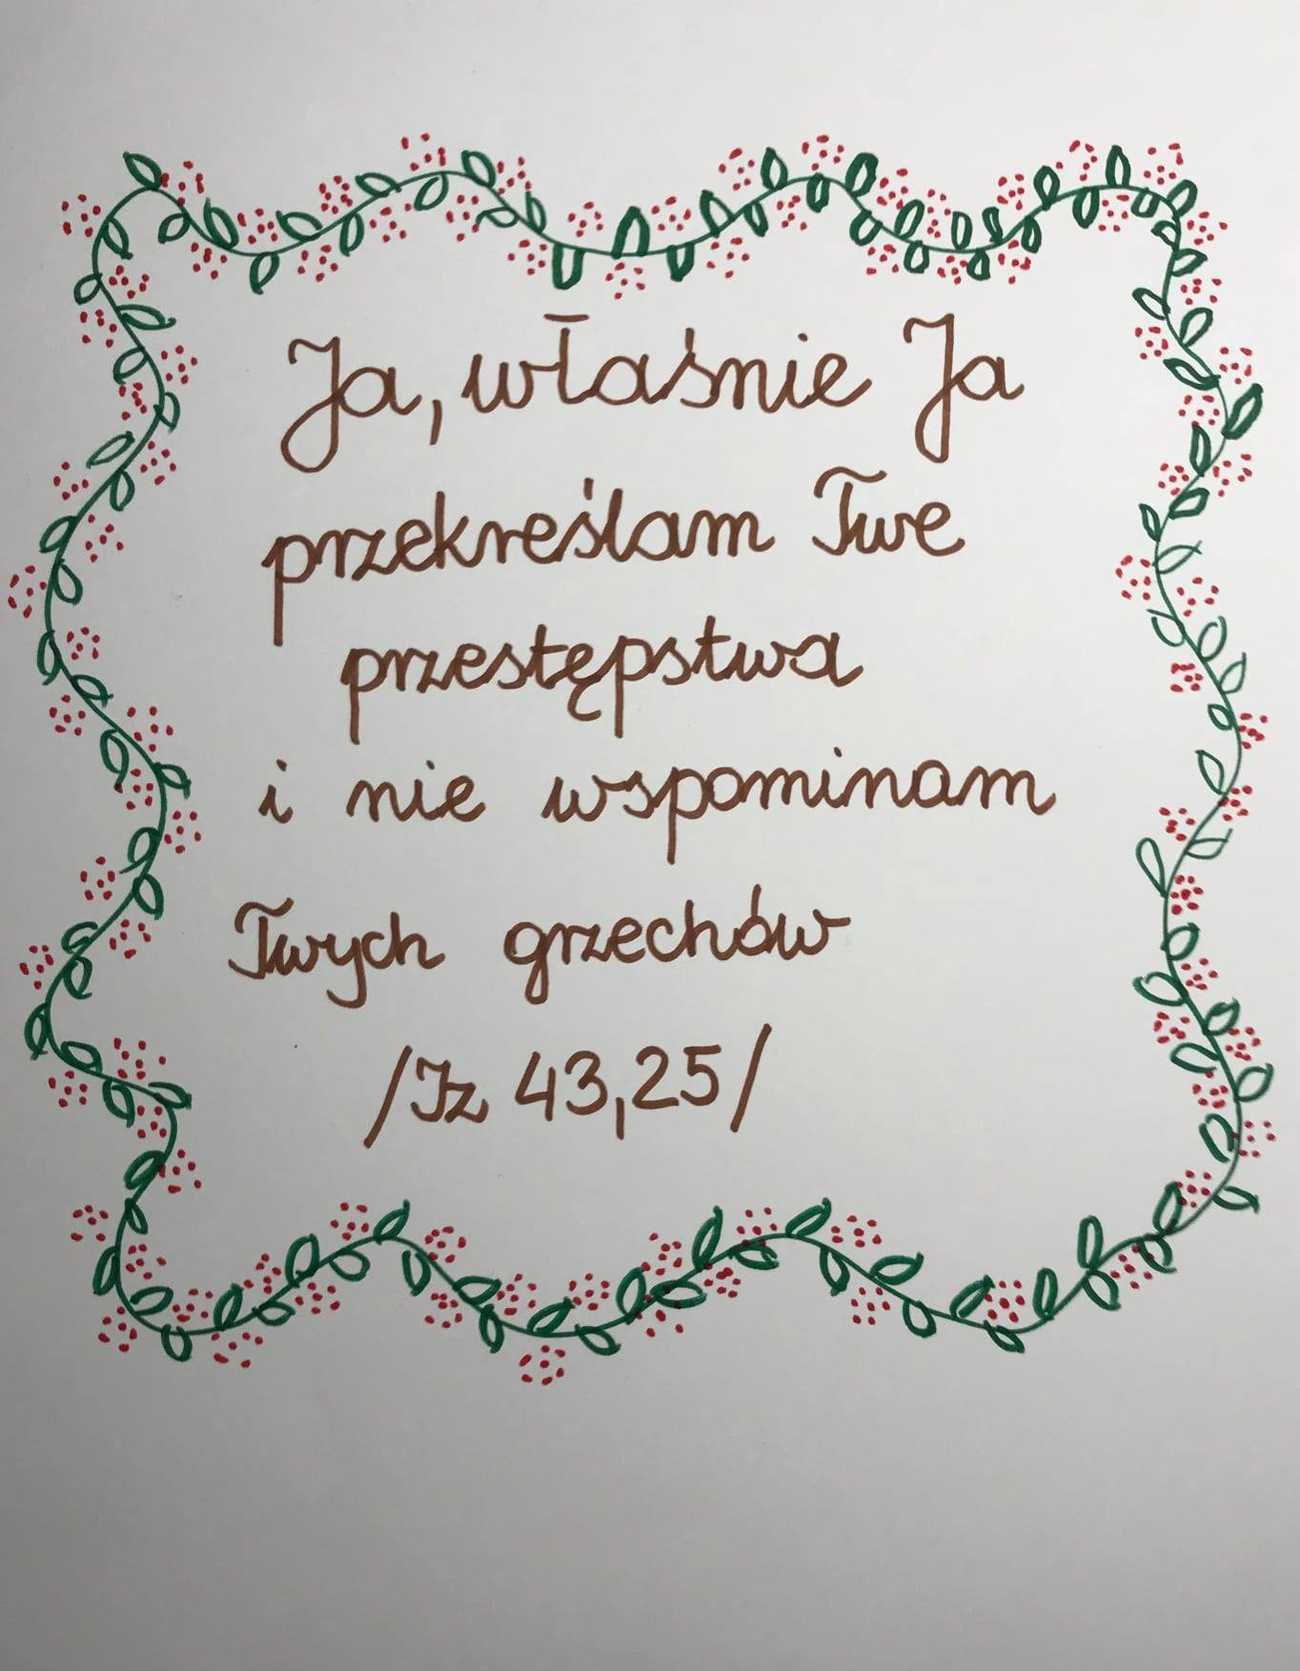 Ja, właśnie Ja
przekreślam Twe
przestępstwa
i nie wspominam
Twych grzechów
/Iz 43,25/